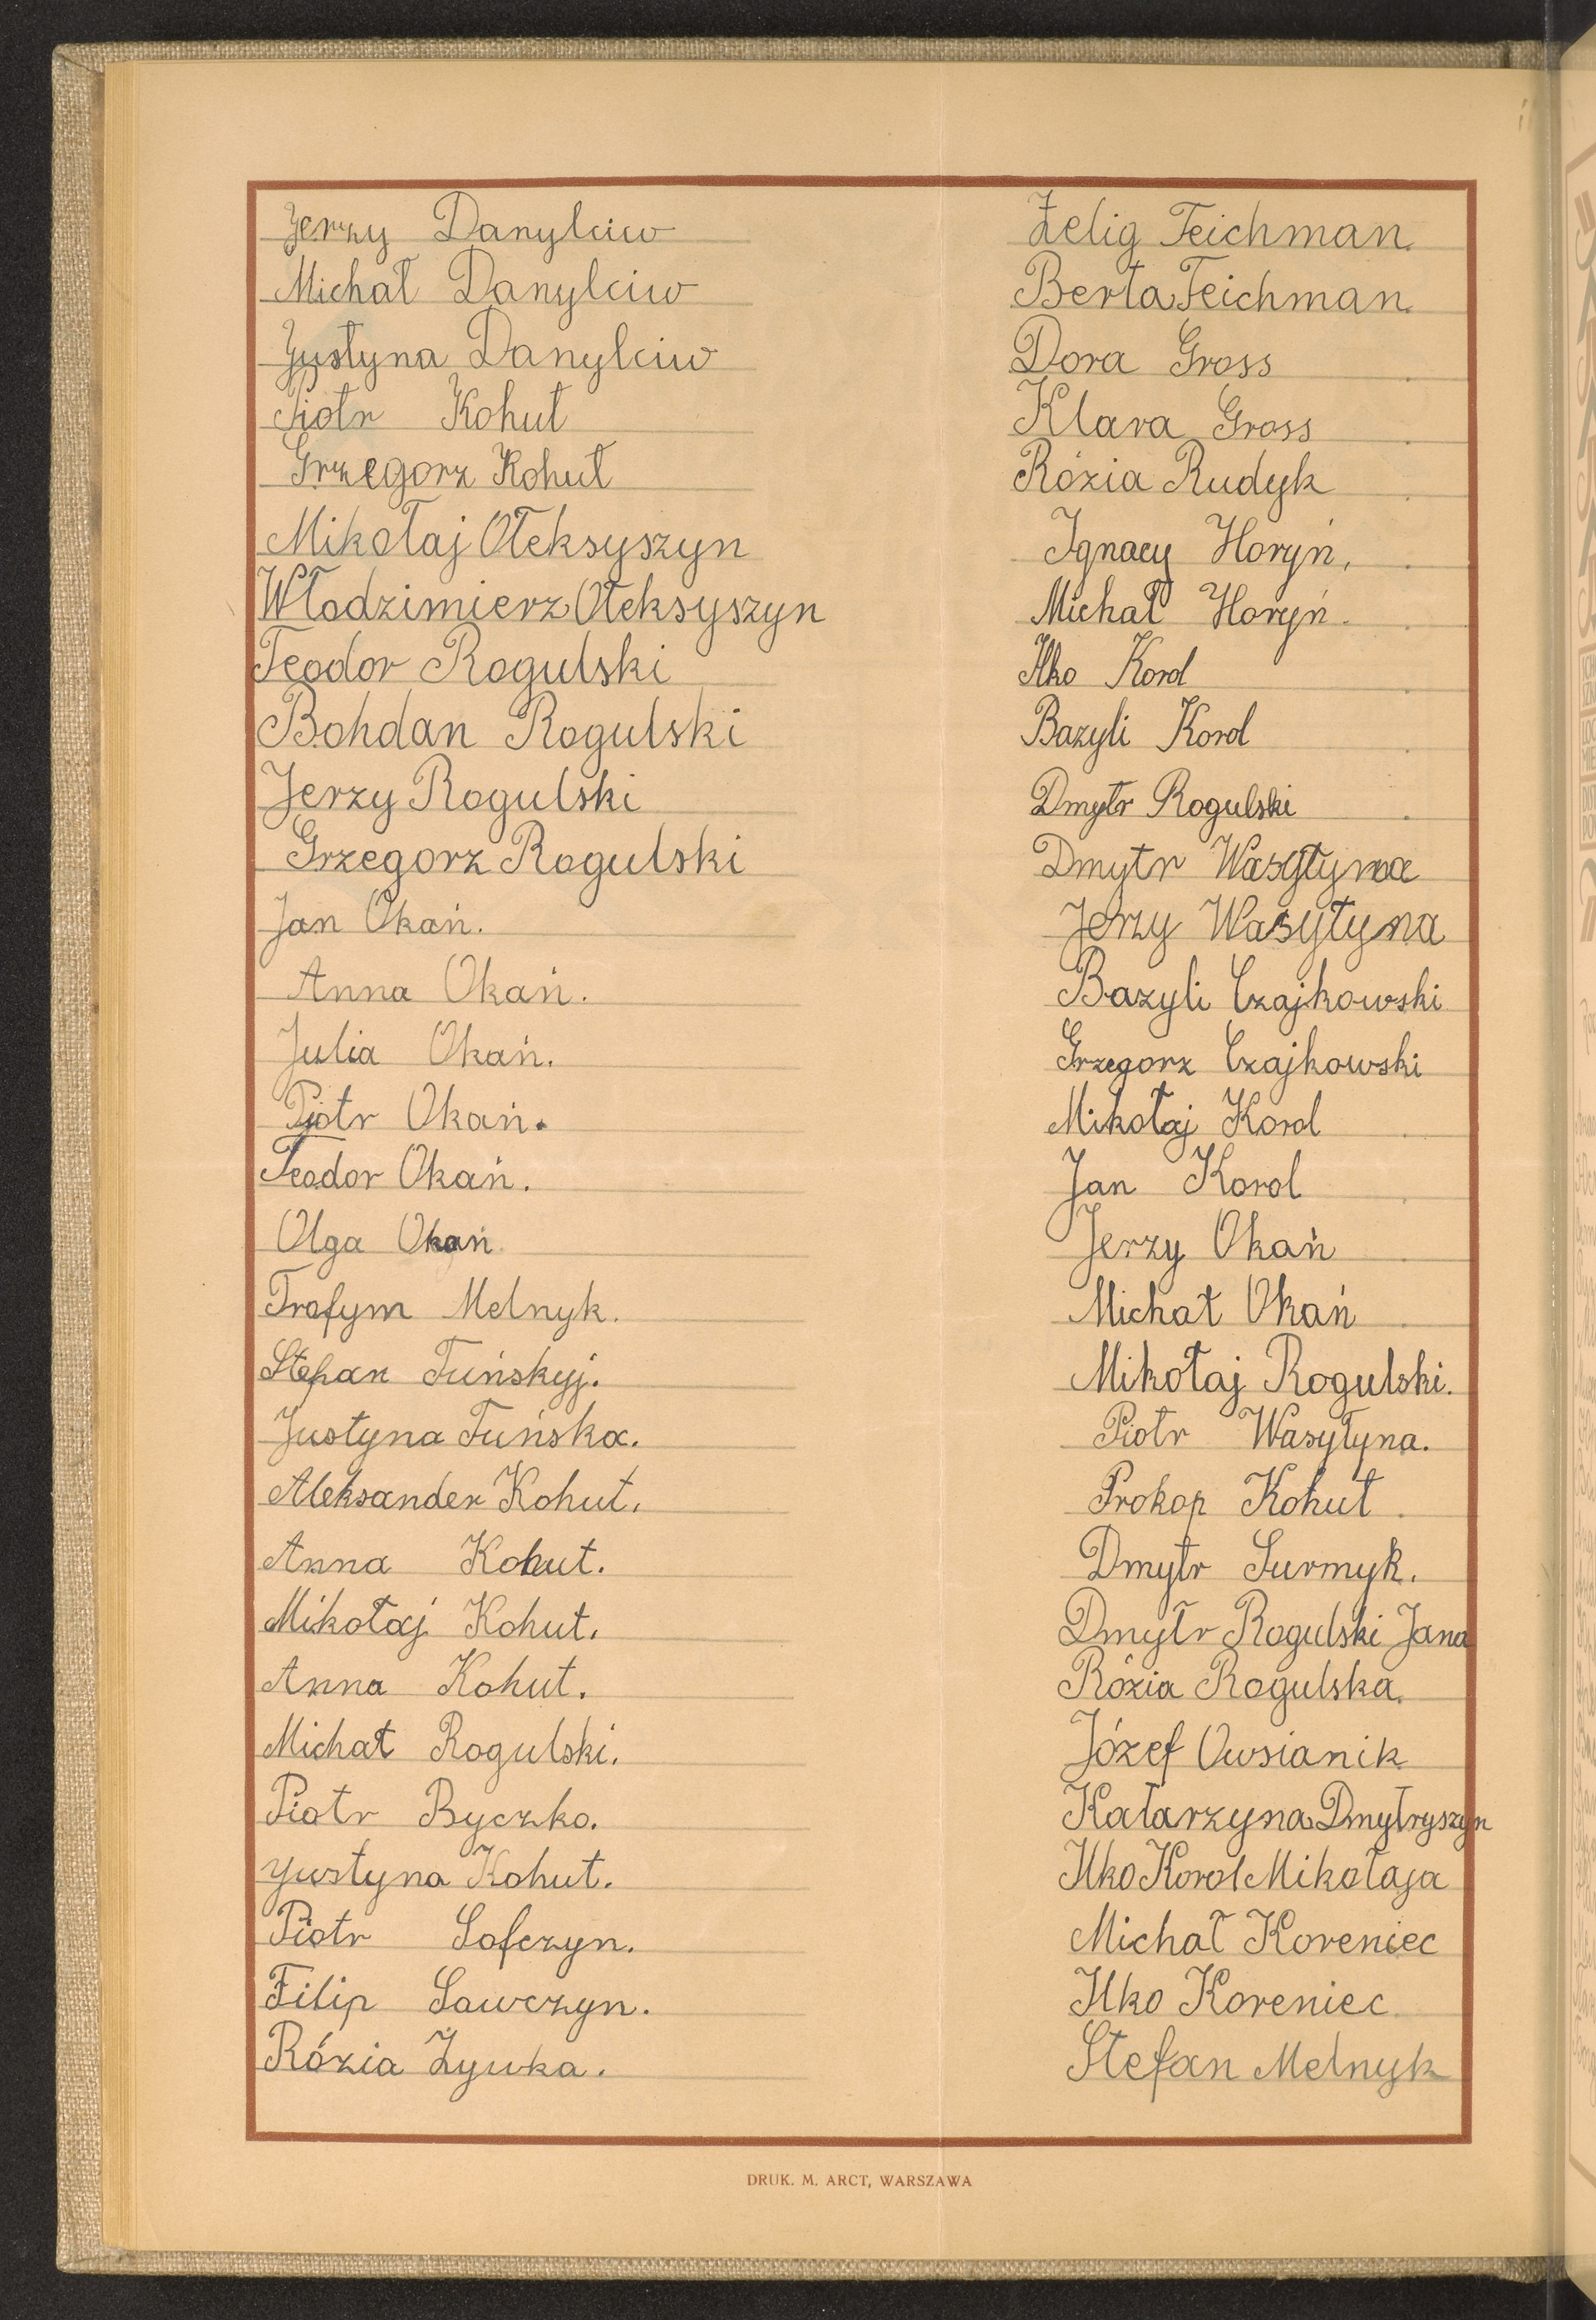 Jerzy Danylciw
Michał Danylciw
Justyna Danylciw
Piotr Kohut
Grzegorz Kohut
Mikołaj Ołeksyszyn
Włodzimierz Ołeksyszyn
Teodor Rogulski
Bohdan Rogulski
Jerzy Rogulski
Grzegorz Rogulski
Jan Okań.
Anna Okań.
Julia Okań.
Piotr Okań.
Teodor Okań.
Olga Okań
Trofym Melnyk.
Stepan Tuńskyj.
Justyna Tuńska.
Aleksander Kohut.
Anna Kohut.
Mikołaj Kohut.
Anna Kohut.
Michał Rogulski.
Piotr Byczko.
Justyna Kohut.
Piotr Sofczyn.
Filip Sawczyn.
Rózia Żywka.
Zelig Teichman
Berta Teichman
Dora Gross
Klara Gross
Rózia Rudyk
Ignacy Horyń,
Michał Horyń.
Ilko Korol
Bazyli Korol
Dmytr Rogulski
Dmytr Wasyłyna
Jerzy Wasyłyna
Bazyli Czajkowski
Grzegorz Czajkowski
Mikołaj Korol
Jan Korol
Jerzy Okań
Michał Okań
Mikołaj Rogulski.
Piotr Wasyłyna.
Prokop Kohut
Dmytr Surmyk.
Dmytr Rogulski Jana
Rózia Rogulska
Józef Owsianik
Katarzyna Dmytryszyn
Ilko Korol Mikołaja
Michał Koreniec
Ilko Koreniec
Stefan Melnyk
DRUK. M. ARCT, WARSZAWA